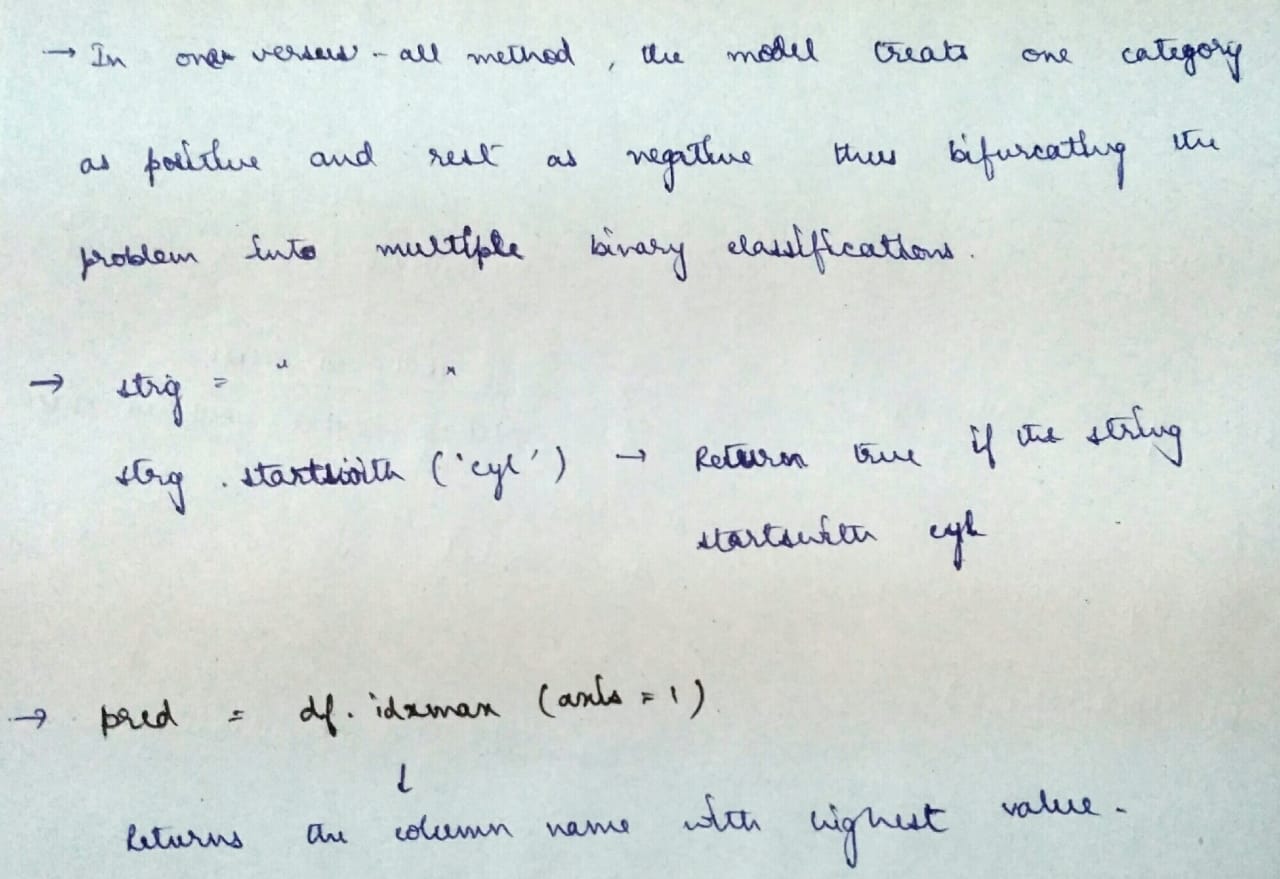 → In one versus-all method, the model treats one category
as positive and rest as negative thus bifurcating the
problem into multiple binary classifications.
→ strg = " "
strg.startswith ('cyl') → Return true if the string
startswith cyl
→ pred = df.idxmax (axis = 1)
↓
Returns the column name with highest value.